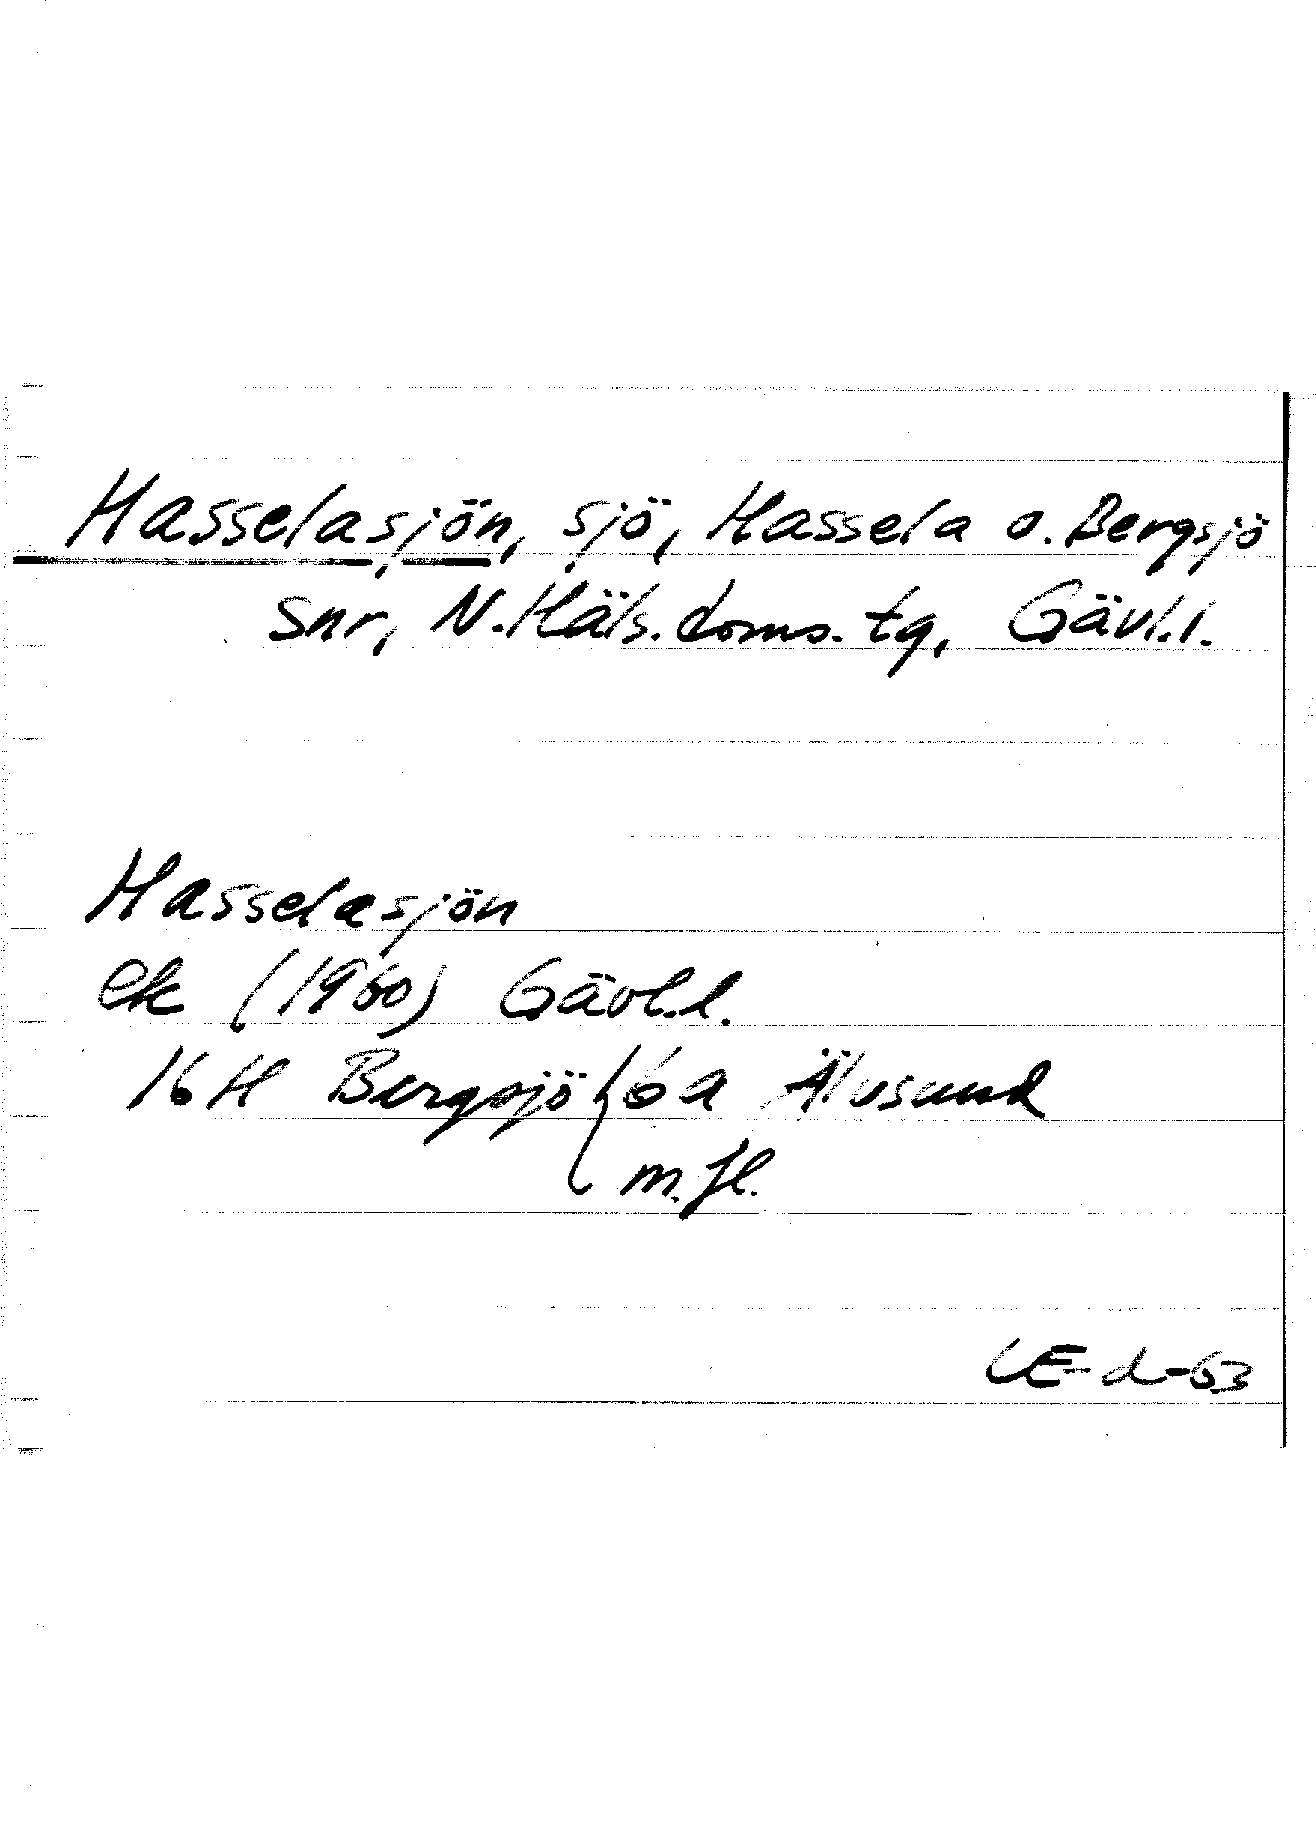 Hasselasjön, sjö, Hassela o. Bergsjö
snr, N. Häls. doms. tg, Gävl.l.
Hasselasjön
ek (1960) Gävl.l.
16H Bergsjö 6a Älvsund
m.fl.
LE-d-63